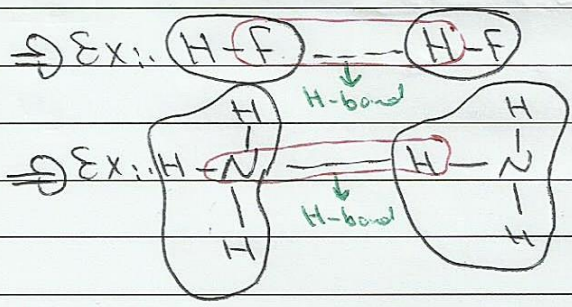 Ex: H-F --- H-F
H-bond
H
H
Ex: H-N --- H-N
H-bond
H
H